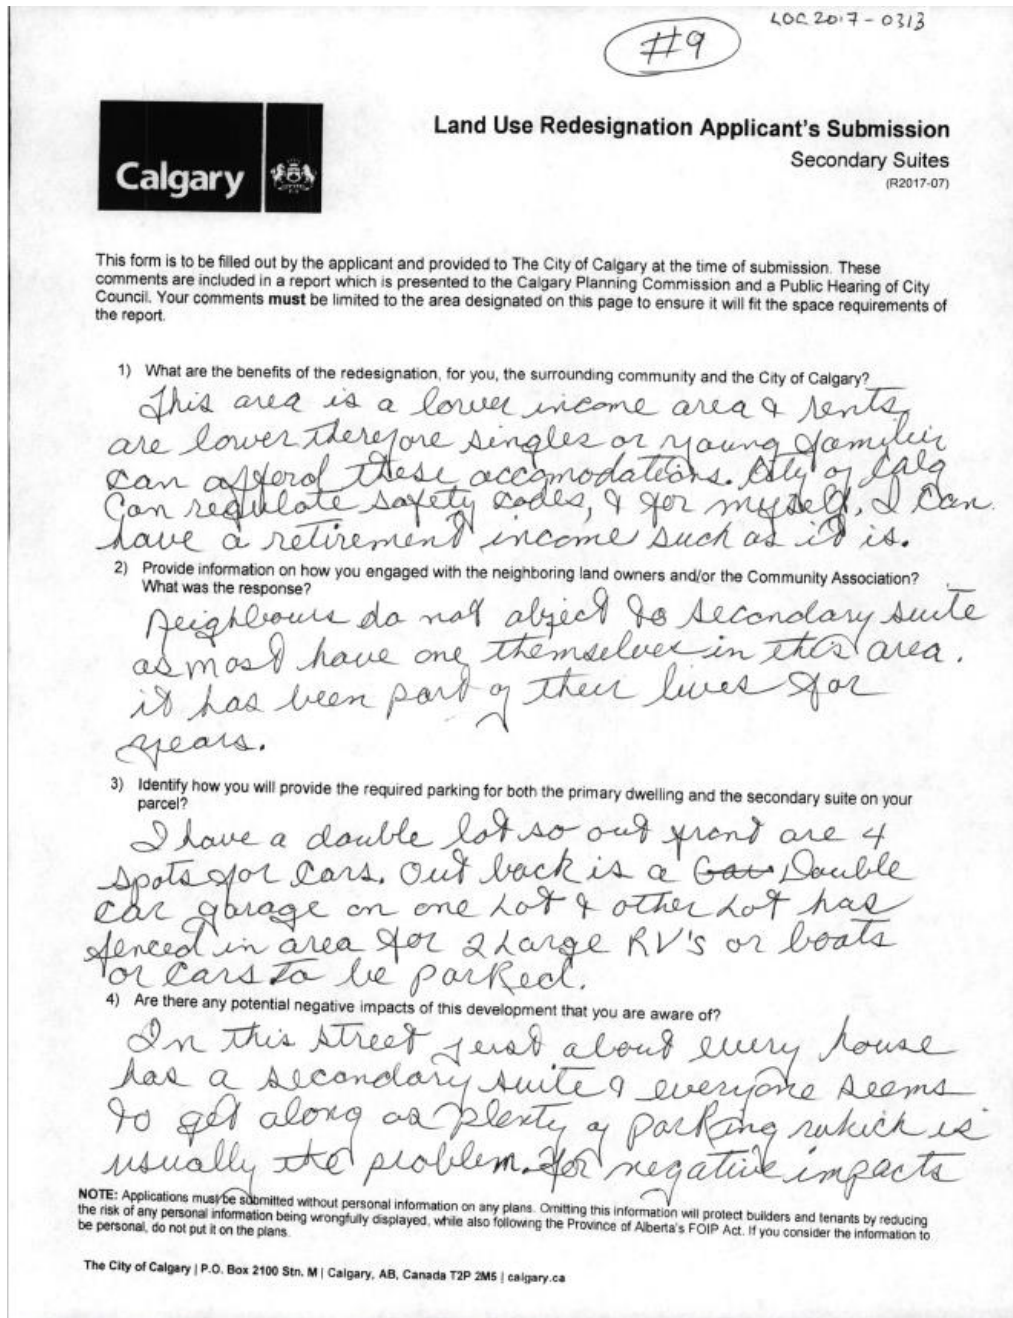 LOC 2017-0313
#9
Calgary
Land Use Redesignation Applicant's Submission
Secondary Suites
(R2017-07)
This form is to be filled out by the applicant and provided to The City of Calgary at the time of submission. These
comments are included in a report which is presented to the Calgary Planning Commission and a Public Hearing of City
Council. Your comments must be limited to the area designated on this page to ensure it will fit the space requirements of
the report.
1) What are the benefits of the redesignation, for you, the surrounding community and the City of Calgary?
This area is a lower income area & rents
are lower therefore singles or young families
can afford these accomodations. City of Calg
Can regulate safety codes, & for myself, I can
have a retirement income such as it is.
2) Provide information on how you engaged with the neighboring land owners and/or the Community Association?
What was the response?
Neighbours do not object to secondary suite
as most have one themselves in this area.
it has been part of their lives for
years.
3) Identify how you will provide the required parking for both the primary dwelling and the secondary suite on your
parcel?
I have a double lot so out front are 4
spots for cars. Out back is a Gar Double
car garage on one Lot & other Lot has
fenced in area for 2 Large RV's or boats
or cars to be parked.
4) Are there any potential negative impacts of this development that you are aware of?
In this street just about every house
has a secondary suite & everyone seems
to get along as plenty of parking which is
usually the problem. for negative impacts
NOTE: Applications must be submitted without personal information on any plans. Omitting this information will protect builders and tenants by reducing
the risk of any personal information being wrongfully displayed, while also following the Province of Alberta's FOIP Act. If you consider the information to
be personal, do not put it on the plans.
The City of Calgary | P.O. Box 2100 Stn. M | Calgary, AB, Canada T2P 2M5 | calgary.ca